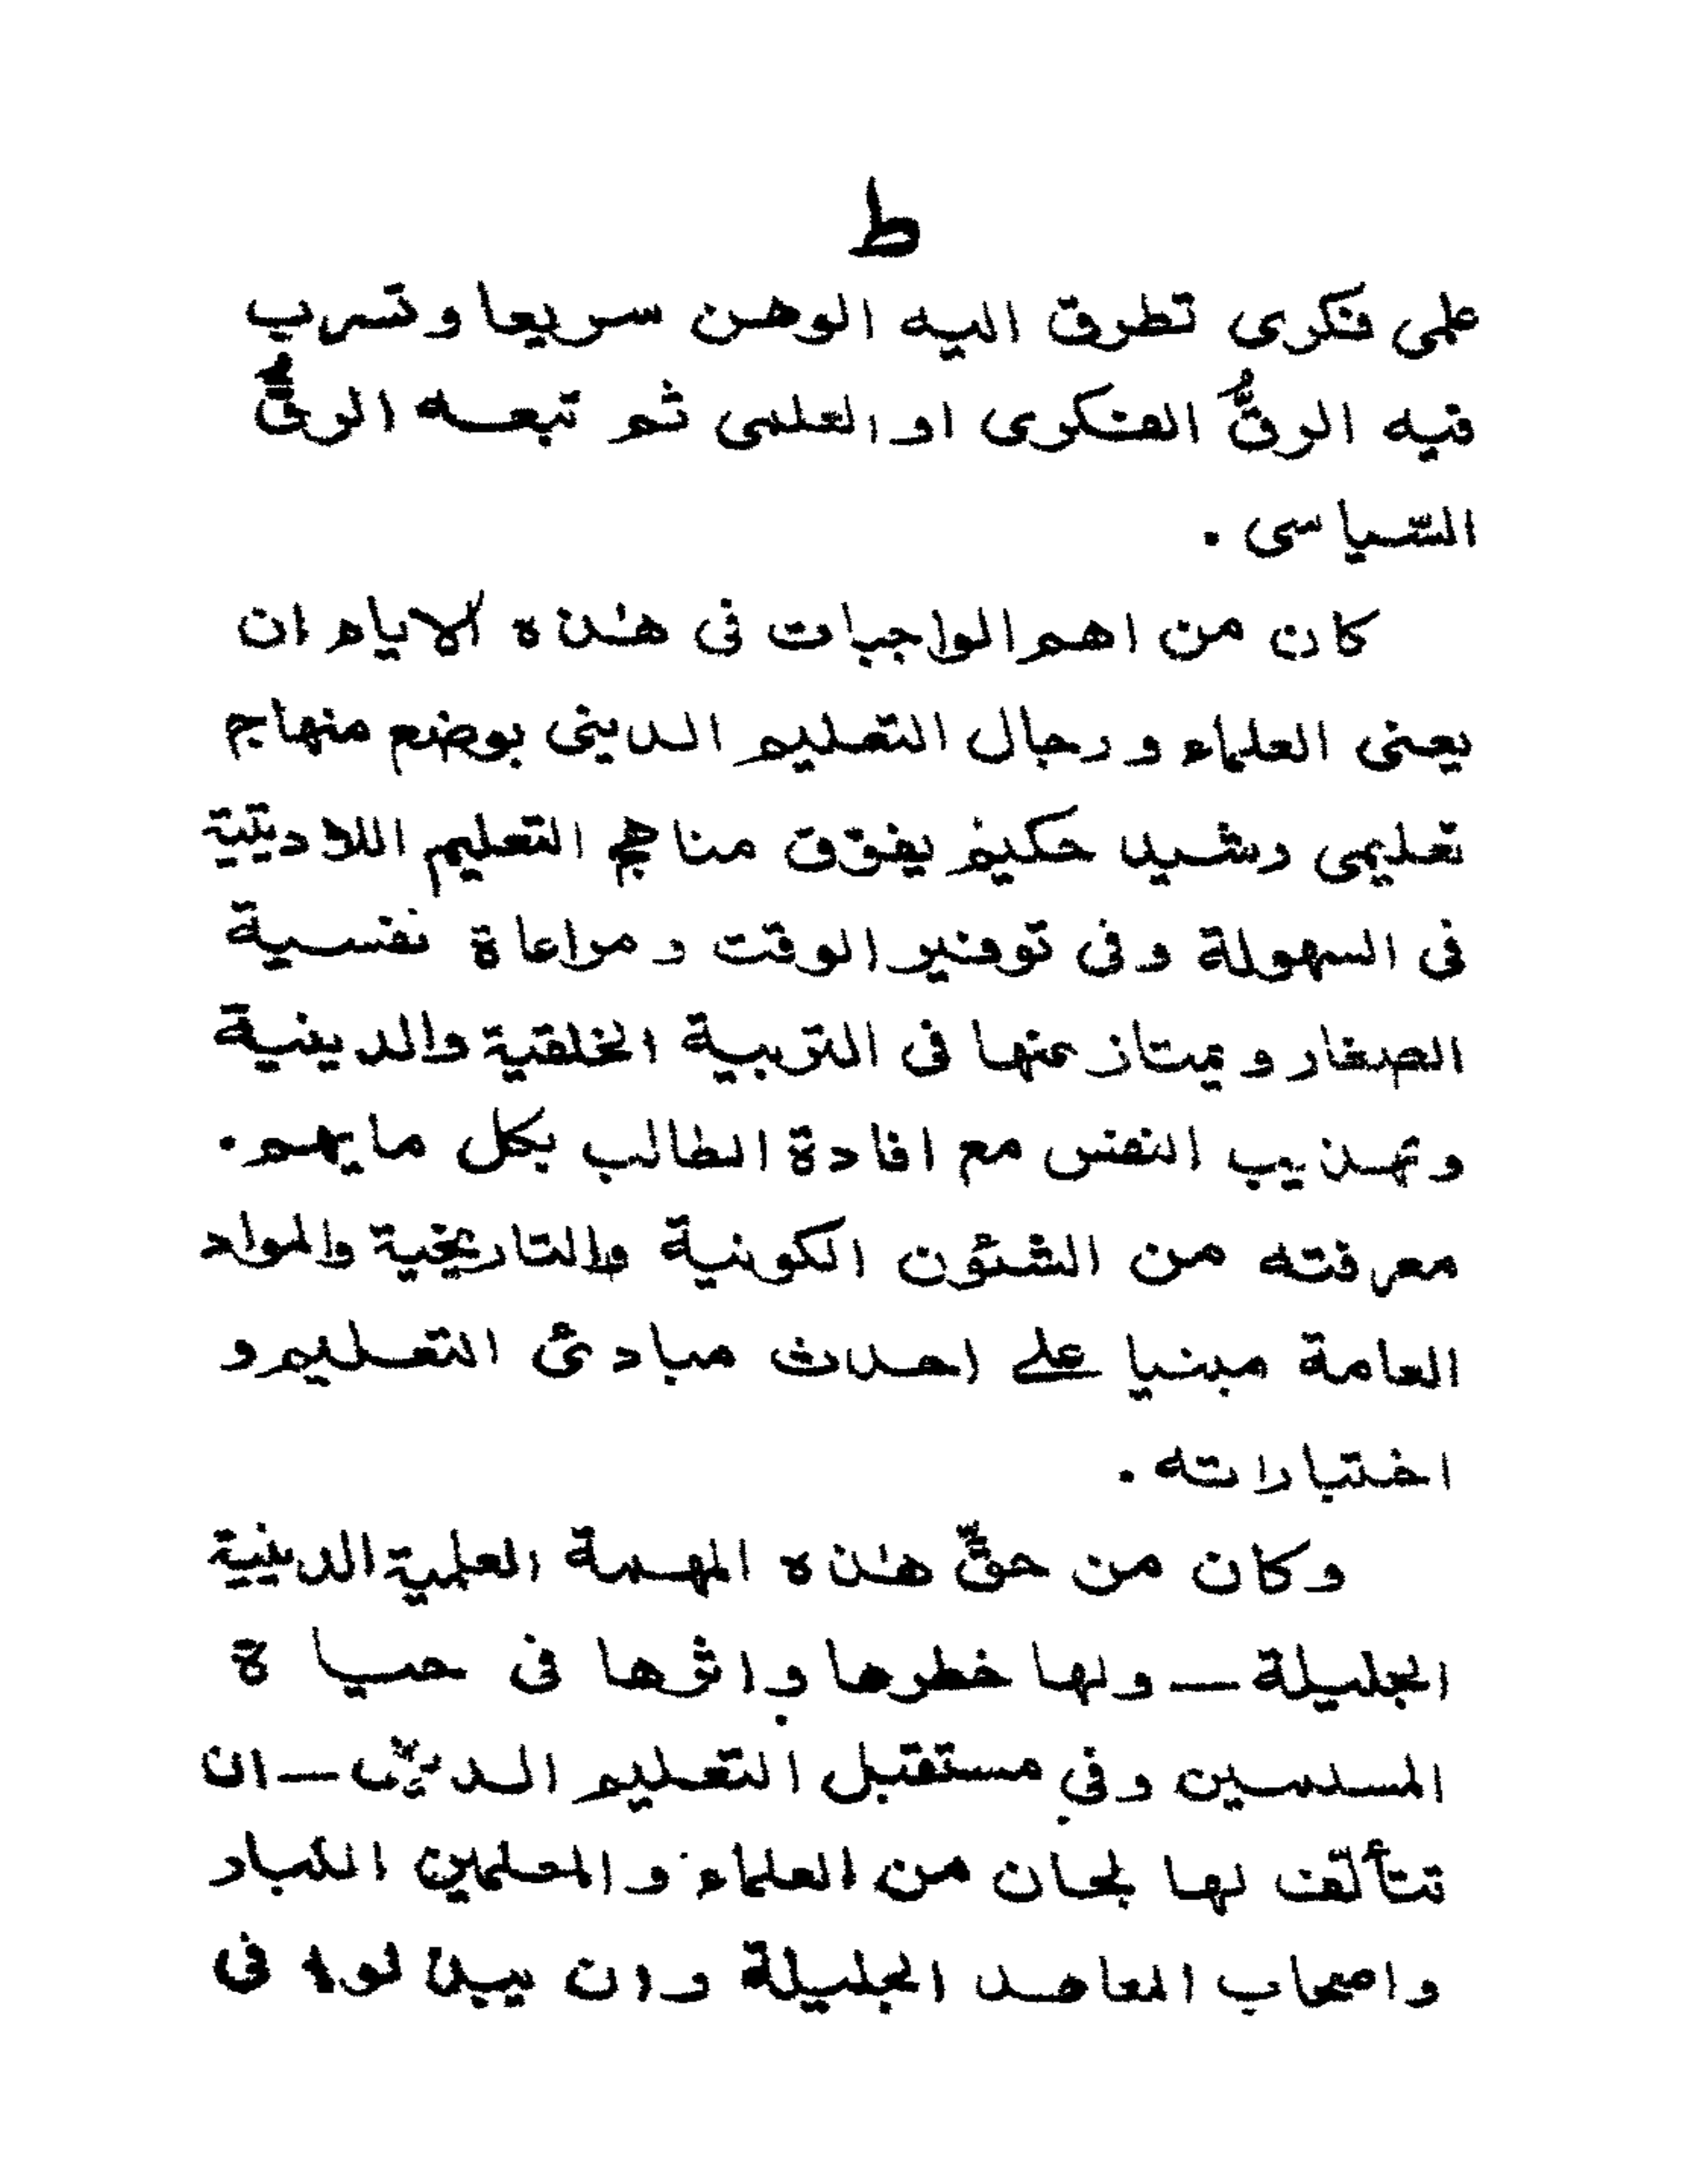 ط
علمى فكرى تطرق اليه الوهن سريعا وتسرب
فيه الرقُّ الفكرى او العلمى ثم تبعه الرقُّ
السّياسى .
كان من اهم الواجبات فى هذه الايام ان
يعنى العلماء ورجال التعليم الدينى بوضع منهاج
تعليمى رشيد حكيم يفوق مناهج التعليم اللادينية
فى السهولة وفى توفير الوقت ومراعاة نفسية
الصغار ويمتاز عنها فى التربية الخلقية والدينية
وتهذيب النفس مع افادة الطالب بكل مايهم.
معرفته من الشئون الكونية والتاريخية والمواد
العامة مبنيا على احداث مبادئ التعليم و
اختباراته .
وكان من حقّ هذه المهمة العلمية الدينية
الجليلة ـ ولها خطرها واثرها فى حياة
المسلمين وفي مستقبل التعليم الدينى ـ ان
تتألّف لها لجان من العلماء والمعلمين الكبار
واصحاب المعاهد الجليلة وان يبذلوا فى